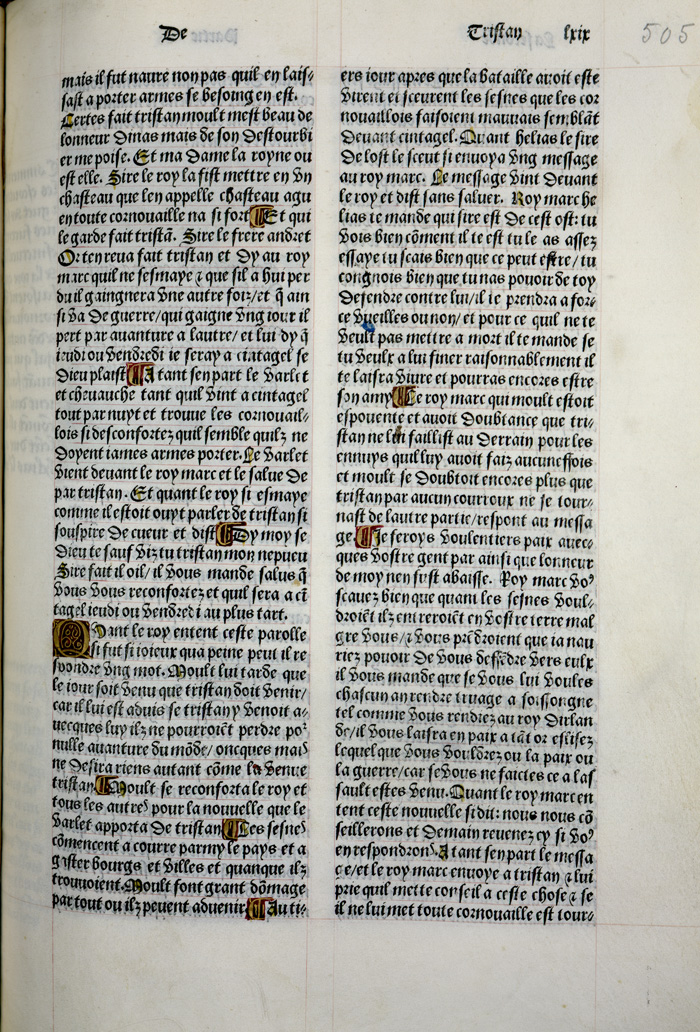 De
Tristan lxix
505
mais il fut naure non pas quil en lais⸗
sast a porter armes se besoing en est.
Certes fait tristan moult mest beau de
lonneur dinas mais de son destourbi
er me poise. Et ma dame la royne ou
est elle. Sire le roy la fist mettre en vn
chasteau que len appelle chasteau agu
en toute cornouaille na si fort Et qui
le garde fait tristã. Sire le frere andret
Or ten reua fait tristan et dy au roy
marc quil ne sesmaye ⁊ que sil a hui per
du il gaingnera vne autre foiz/et q̃ ain
si va de guerre/qui gaigne vng iour il
pert par auanture a lautre/ et lui dy q̃
ieudi ou vendredi ie seray a cintagel se
dieu plaist A tant sen part le varlet
et cheuauche tant quil vint a cintagel
tout par nuyt et trouue les cornouail⸗
lois si desconfortez quil semble quilz ne
doyent iames armes porter. Le varlet
vient deuant le roy marc et le salue de
par tristan. Et quant le roy si esmaye
comme il estoit ouyt parler de tristan si
souspire de cueur et dist Dy moy se
dieu te sauf viz tu tristan mon nepueu
Sire fait il oil/ il vous mande salus q̃
vous vous reconfortez et quil sera a cĩ
tagel ieudi ou vendredi au plus tart.
Quant le roy entent ceste parolle
si fut si ioieux qua peine peut il re
spondre vng mot. Moult lui tarde que
le iour soit venu que tristan doit venir/
car il lui est aduis se tristan y venoit a⸗
uecques luy ilz ne pourroiẽt perdre poꝰ
nulle auanture du mõde/ oncques mais
ne desira riens autant cõme la venue
tristan Moult se reconforta le roy et
tous les autres pour la nouuelle que le
varlet apporta de tristan Les sesnes
cõmencent a courre parmy le pays et a
gaster bourgs et villes et quanque ilz
trouuoient. Moult font grant dõmage
par tout ou ilz peuent aduenir Au ti⸗
ers iour apres que la bataille auoit este
virent et sceurent les sesnes que les cor
nouaillois faisoient mauuais semblãt
deuant cintagel. Quant helias le sire
de lost le sceut si enuoya vng message
au roy marc. Le message vint deuant
le roy et dist sans saluer. Roy marc he
lias te mande qui sire est de cest ost: tu
vois bien cõment il te est tu le as assez
essaye tu scais bien que ce peut estre/ tu
congnois bien que tu nas pouoir de toy
defendre contre lui/il te prendra a for⸗
ce vueilles ou non/ et pour ce quil ne te
veult pas mettre a mort il te mande se
tu veulx a lui finer raisonnablement il
te laisra viure et pourras encores estre
son amy Le roy marc qui moult estoit
espouente et auoit doubtance que tri⸗
stan ne lui faillist au derrain pour les
ennuys quil luy auoit faiz aucuneffois
et moult se doubtoit encores plus que
tristan par aucun courroux ne se tour⸗
nast de lautre partie/respont au messa
ge. Je feroys voulentiers paix auec⸗
ques vostre gent par ainsi que lonneur
de moy nen fust abaisse. Roy marc voꝰ
scauez bien que quant les sesnes voul⸗
droiẽt ilz entreroiẽt en vostre terre mal
gre vous/⁊ vous prẽdroient que ia nau
riez pouoir de vous deffẽdre vers eulx
il vous mande que se vous lui voules
chascun an rendre truage a soissongne
tel comme vous rendiez au roy dirlan
de/il vous laisra en paix a tãt or eslisez
lequel que vous vouldrez ou la paix ou
la guerre/car se vous ne faictes ce a las
sault estes venu. Quant le roy marc en
tent ceste nouuelle si dit: nous nous cõ
seillerons et demain reuenez cy si voꝰ
en respondrons. A tant sen part le messa
ge/et le roy marc enuoye a tristan ⁊ lui
prie quil mette conseil a ceste chose ⁊ se
il ne lui met toute cornouaille est tour⸗